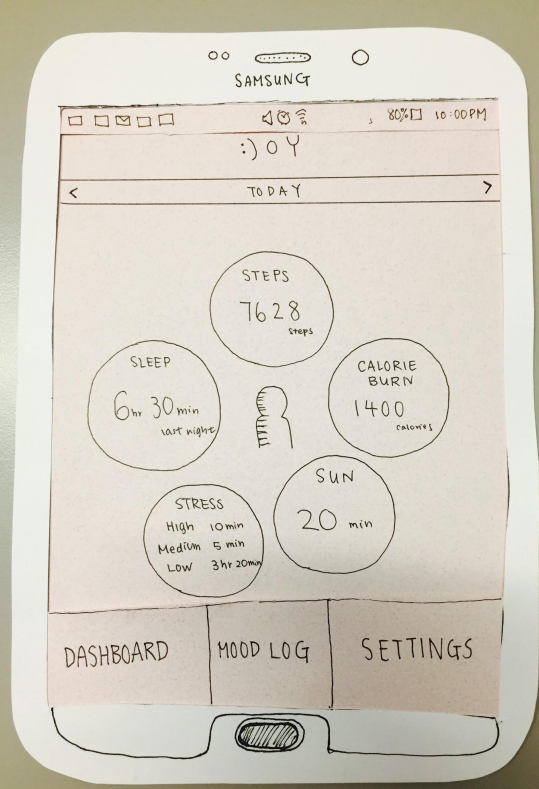 SAMSUNG
80% 10:00PM
:) O Y
< TODAY >
STEPS
7628
steps
SLEEP
6hr 30min
last night
CALORIE
BURN
1400
calories
SUN
20 min
STRESS
High 10min
Medium 5 min
Low 3hr 20min
DASHBOARD
MOOD LOG
SETTINGS